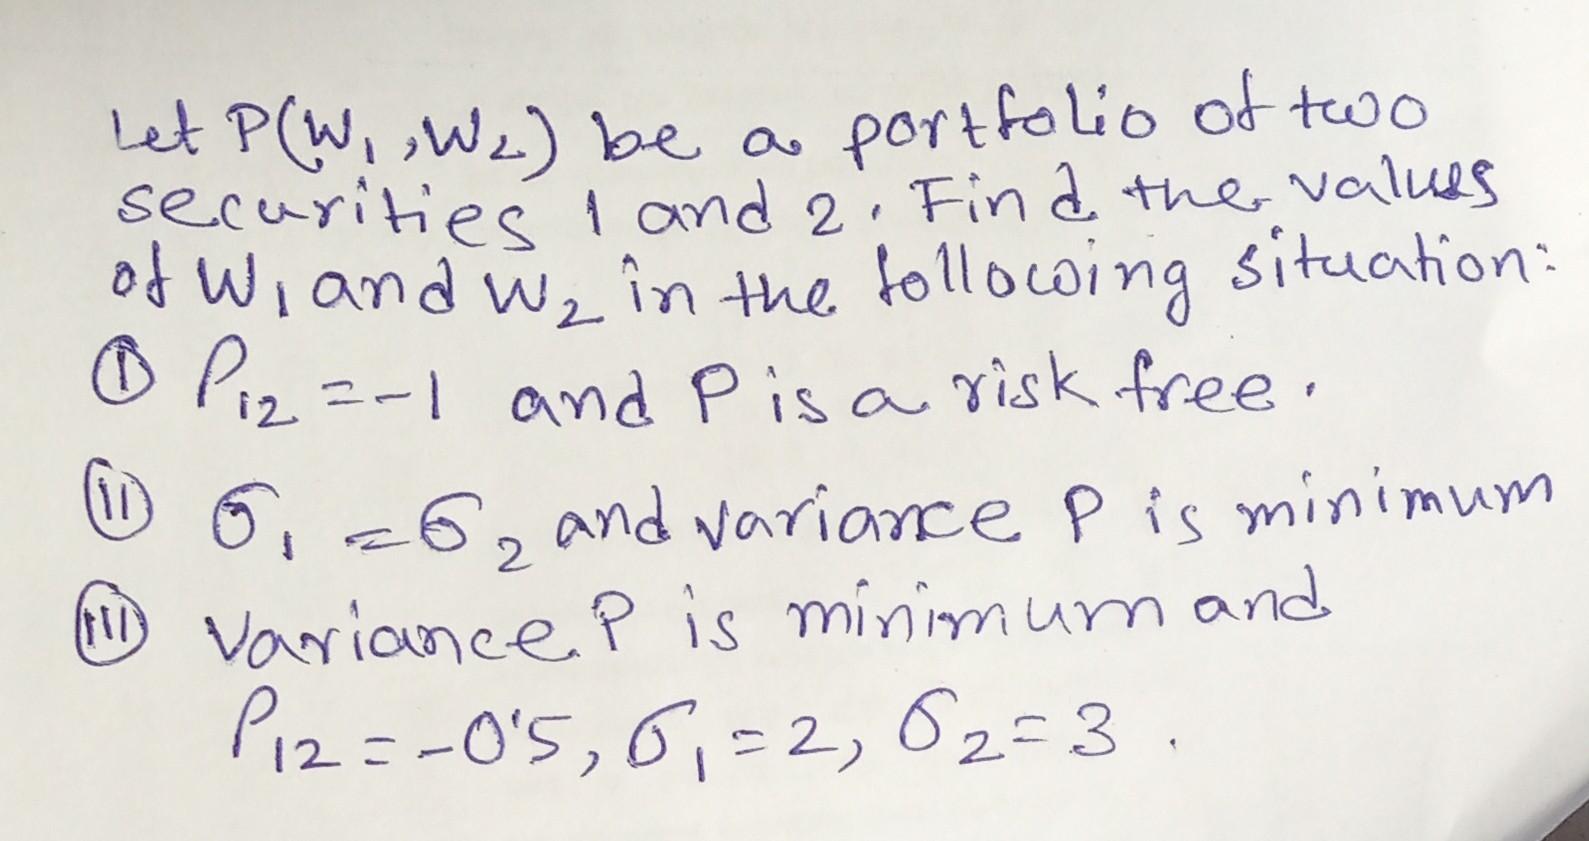 Let P(W₁, W₂) be a portfolio of two
securities 1 and 2. Find the values
of W₁ and W₂ in the following situation:
(I) ρ₁₂ = -1 and P is a risk free.
(II) σ₁ = σ₂ and variance P is minimum
(III) Variance P is minimum and
ρ₁₂ = -0·5, σ₁ = 2, σ₂ = 3.